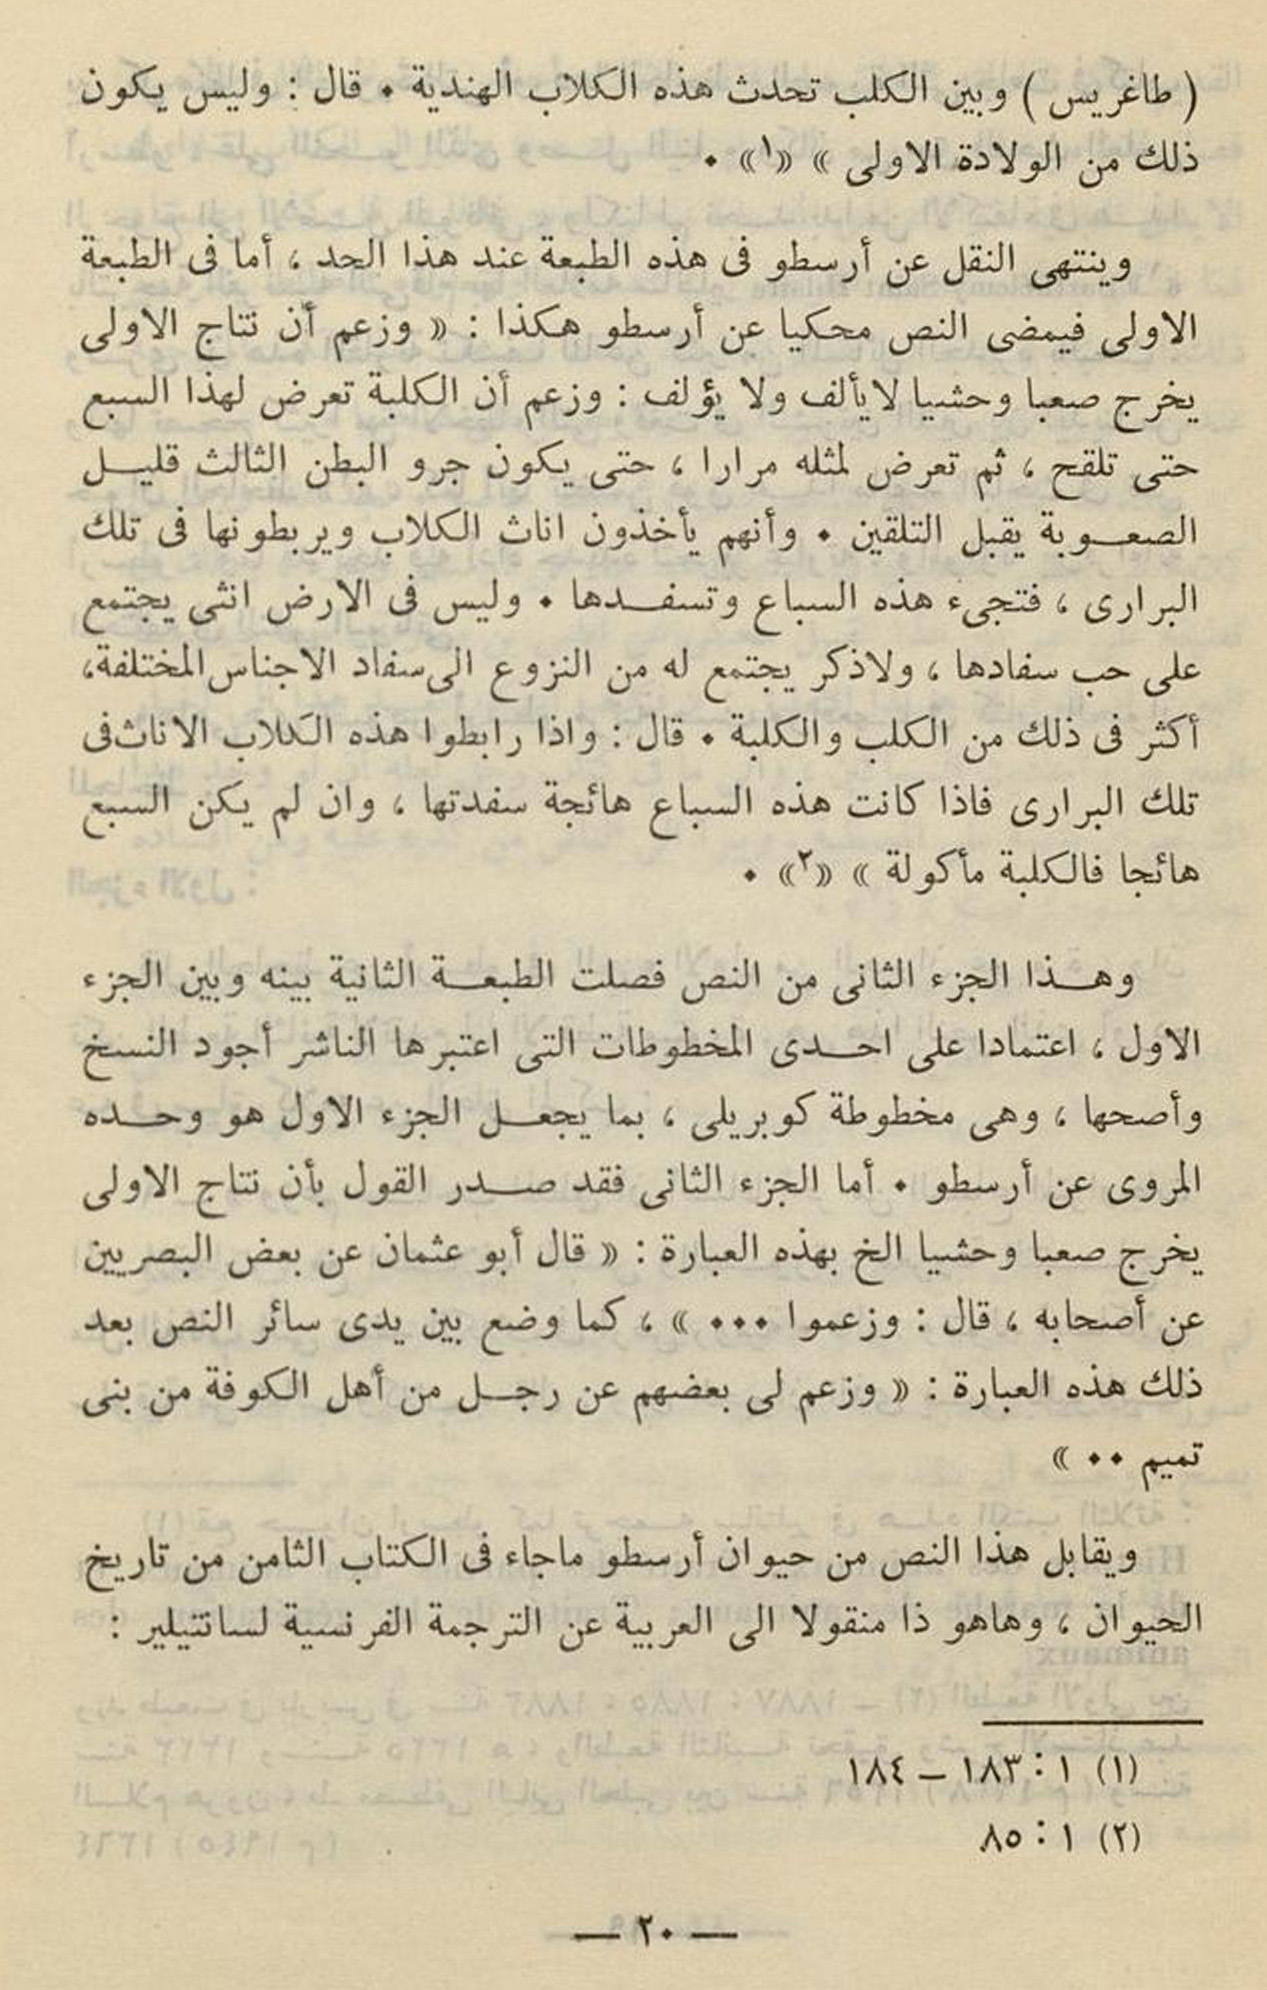 ( طاغريس ) وبين الكلب تحدث هذه الكلاب الهندية ٠ قال : وليس يكون
ذلك من الولادة الاولى » «١» ٠
وينتهى النقل عن أرسطو فى هذه الطبعة عند هذا الحد ، أما فى الطبعة
الاولى فيمضى النص محكيا عن أرسطو هكذا : « وزعم أن نتاج الاولى
يخرج صعبا وحشيا لايألف ولا يؤلف : وزعم أن الكلبة تعرض لهذا السبع
حتى تلقح ، ثم تعرض لمثله مرارا ، حتى يكون جرو البطن الثالث قليل
الصعوبة يقبل التلقين ٠ وأنهم يأخذون اناث الكلاب ويربطونها فى تلك
البرارى ، فتجىء هذه السباع وتسفدها ٠ وليس فى الارض انثى يجتمع
على حب سفادها ، ولاذكر يجتمع له من النزوع الى سفاد الاجناس المختلفة،
أكثر فى ذلك من الكلب والكلبة ٠ قال : واذا رابطوا هذه الكلاب الاناث فى
تلك البرارى فاذا كانت هذه السباع هائجة سفدتها ، وان لم يكن السبع
هائجا فالكلبة مأكولة » «٢» ٠
وهذا الجزء الثانى من النص فصلت الطبعة الثانية بينه وبين الجزء
الاول ، اعتمادا على احدى المخطوطات التى اعتبرها الناشر أجود النسخ
وأصحها ، وهى مخطوطة كوبريلى ، بما يجعل الجزء الاول هو وحده
المروى عن أرسطو ٠ أما الجزء الثانى فقد صدر القول بأن نتاج الاولى
يخرج صعبا وحشيا الخ بهذه العبارة : « قال أبو عثمان عن بعض البصريين
عن أصحابه ، قال : وزعموا ٠٠٠ » ، كما وضع بين يدى سائر النص بعد
ذلك هذه العبارة : « وزعم لى بعضهم عن رجل من أهل الكوفة من بنى
تميم ٠٠ »
ويقابل هذا النص من حيوان أرسطو ماجاء فى الكتاب الثامن من تاريخ
الحيوان ، وهاهو ذا منقولا الى العربية عن الترجمة الفرنسية لسانتيلير :
(١) ١ : ١٨٣ – ١٨٤
(٢) ١ : ٨٥
— ٢٠ —